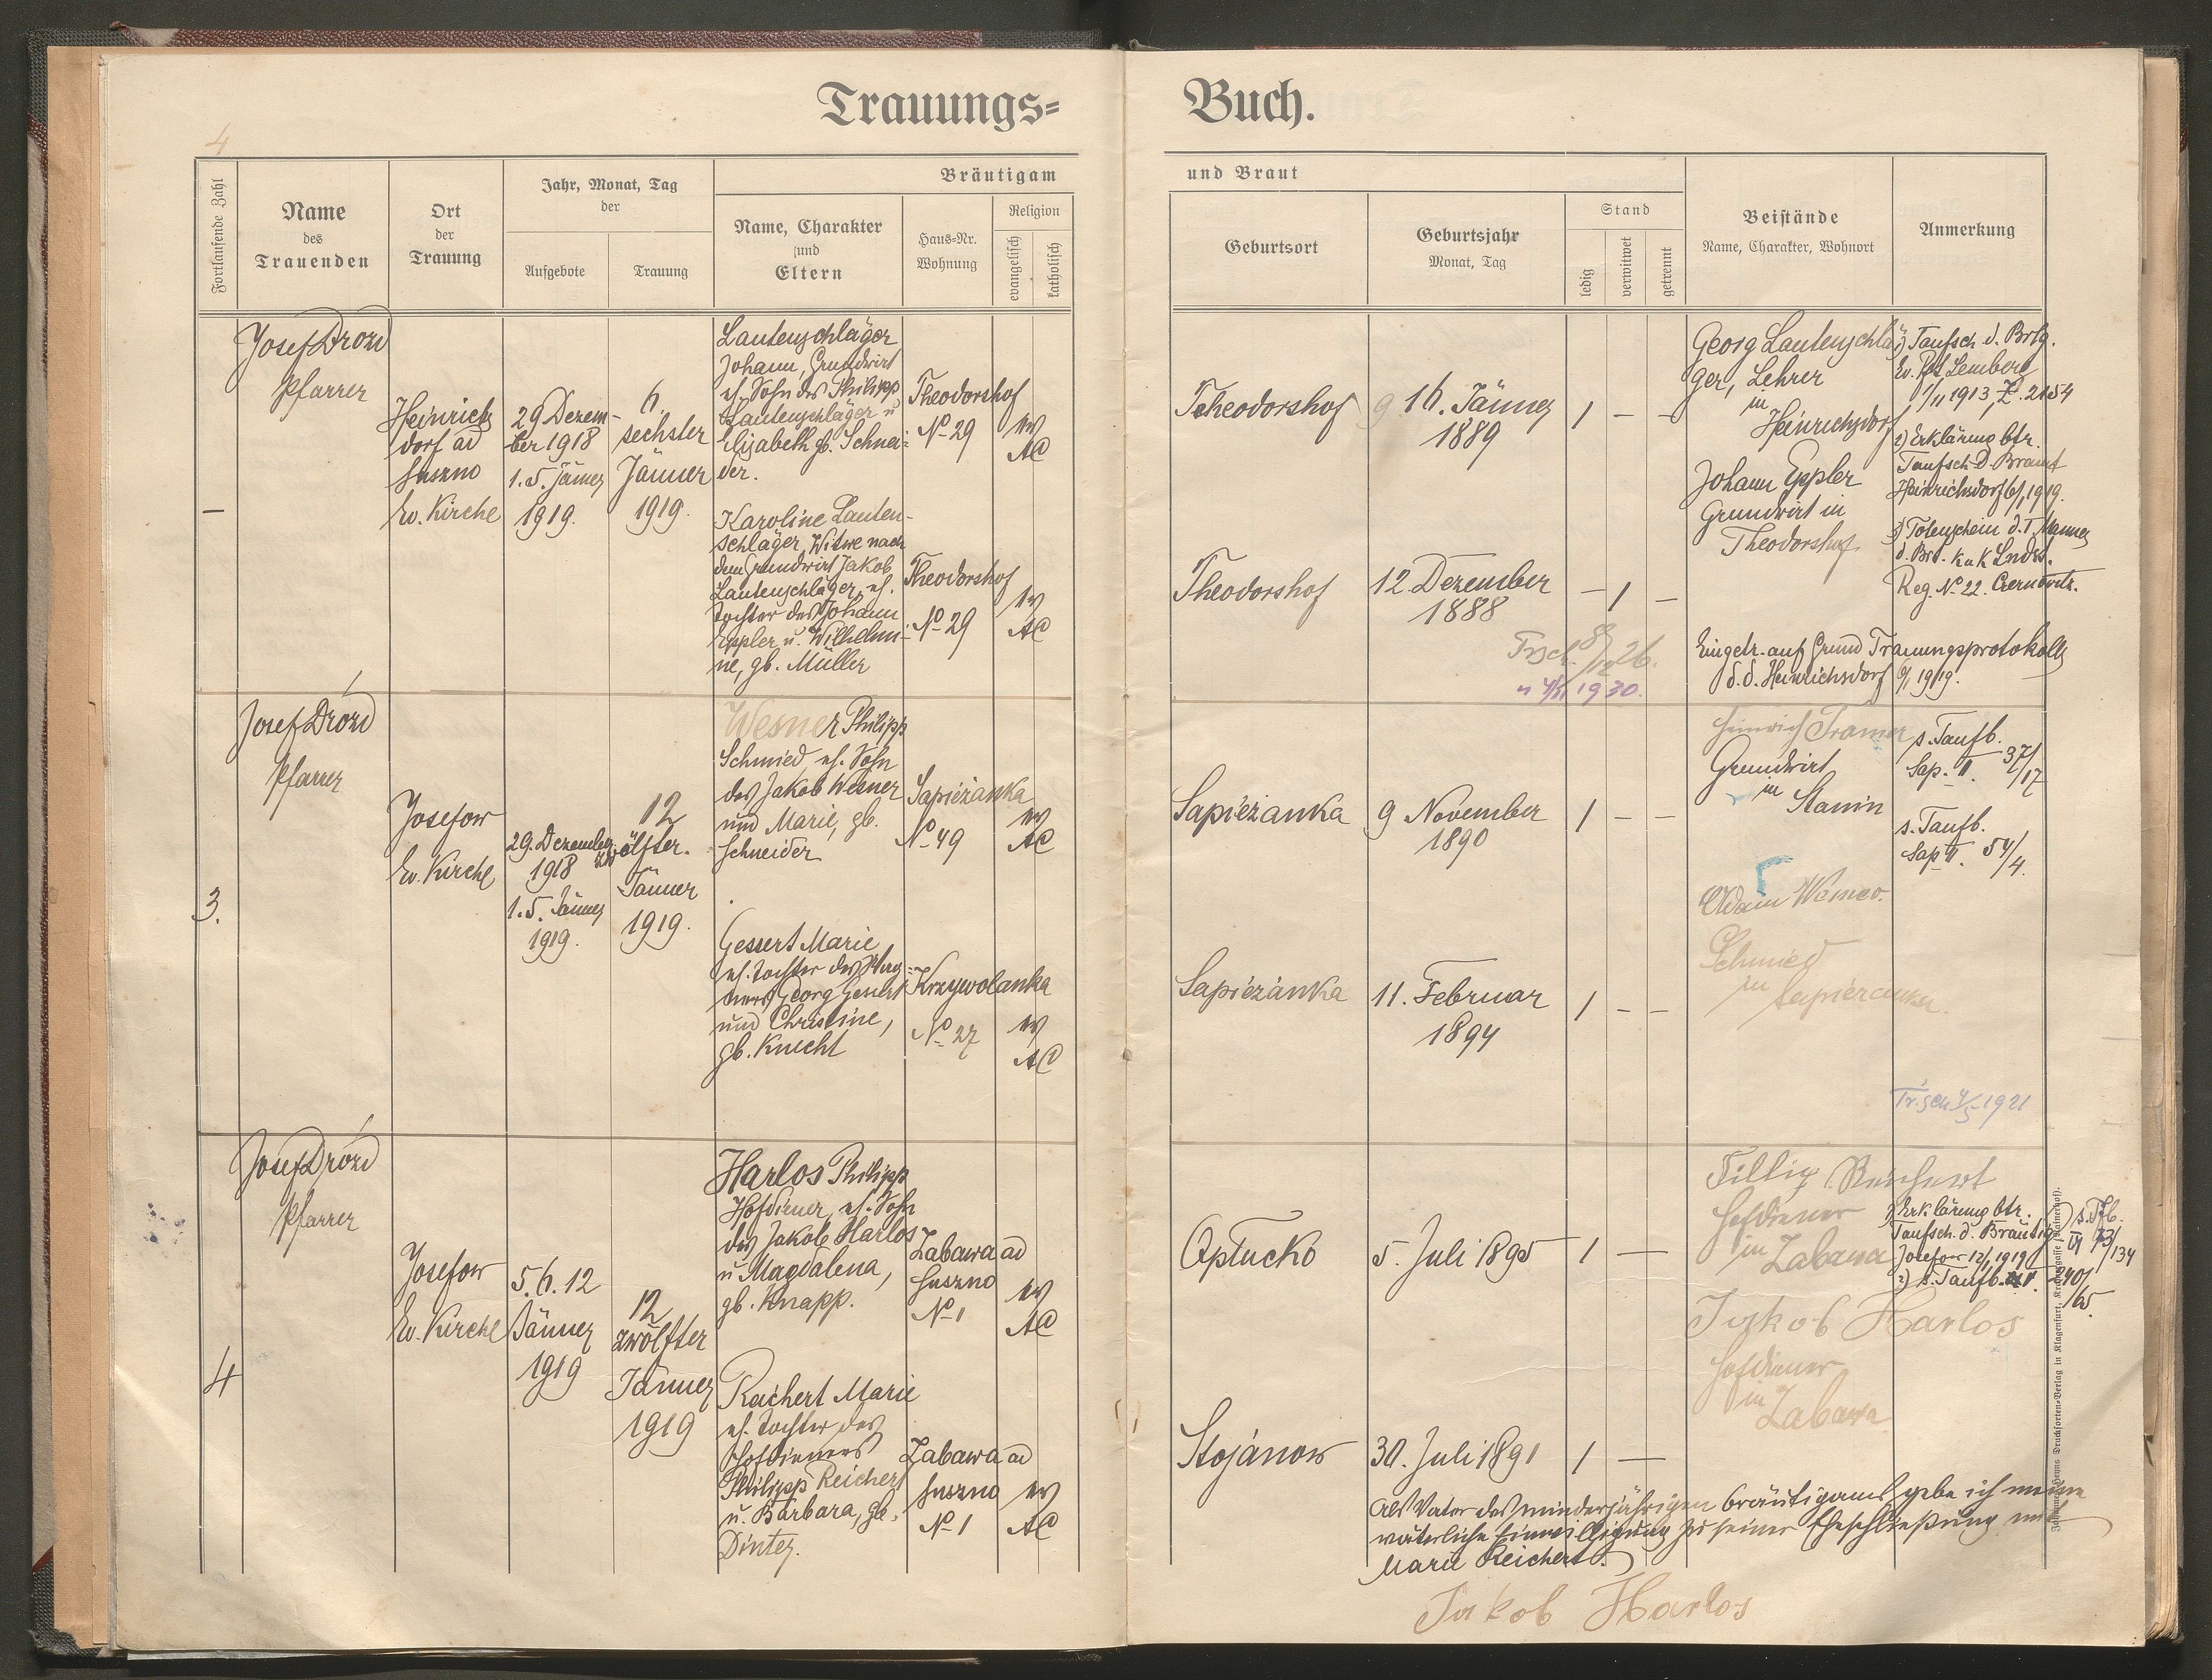 Trauungs=
Buch.
4
Fortlaufende Zahl
Name
des
Trauenden
Ort
der
Trauung
Jahr, Monat, Tag
der
Aufgebote
Trauung
Bräutigam
Name, Charakter
und
Eltern
Haus=Nr.
Wohnung
Religion
evangelisch
katholisch
und Braut
Geburtsort
Geburtsjahr
Monat, Tag
Stand
ledig
verwitwet
getrennt
Beistände
Name, Charakter, Wohnort
Anmerkung
–
Josef Drozd
Pfarrer
Heinrichs
dorf ad
Suszno
Ev. Kirche
29 Dezem-
ber 1918
1. 5. Jänner
1919.
6.
sechster
Jänner
1919.
Lautenschläger
Johann, Grundwirt
eh. Sohn des Philipp
Lautenschläger u
Elisabeth gb. Schnei-
der.
Theodorshof
No 29
ev
AC
Karoline Lauten-
schläger, Witwe nach
dem Grundwirt Jakob
Lautenschläger, eh.
Tochter des Johann
Eppler u. Wilhelmi-
ne, gb. Müller
Theodorshof
No 29
ev
AC
Theodorshof
16. Jänner
1889
1 – –
Theodorshof
12 Dezember
1888
– 1 –
Georg Lautenschlä
ger, Lehrer
in
Heinrichsdorf
Johann Eppler
Grundwirt in
Theodorshof
1) Taufsch. d. Brtg.
Ev. Pf. Lemberg
1/11 1913, Z. 2154
2) Erklärung btr.
Taufsch. d. Braut
Heinrichsdorf 6/1 1919.
3) Totenschein d. I. Mannes
d. Brt. kuk Lndst.
Reg. No 22. Czernowitz.
Eingetr. auf Grund Trauungsprotokolls
d. d. Heinrichsdorf 6/1 1919.
1930.
3.
Josef Drozd
Pfarrer
Josefow
Ev. Kirche
29. Dezember
1918
1. 5. Jänner
1919.
12
zwölfter.
Jänner
1919.
Wesner Philipp
Schmied, eh. Sohn
des Jakob Wesner
und Marie, gb.
Schneider
Sapieżanka
No 49
ev
AC
Gessert Marie
eh. Tochter des
Georg Gessert
und Christine,
gb. Knecht
Krzywolanka
No 27
ev
AC
Sapieżanka
9 November
1890
1 – –
Sapieżanka
11. Februar
1894
1 – –
Heinrich Tramer
Grundwirt
in
Stanin
Adam Wesner.
Schmied
in
Sapiezanka.
s. Taufb.
Sap. II. 37/17
s. Taufb.
Sap II. 54/4.
Tr.sch 4/5 1921
4
Josef Drozd
Pfarrer
Josefow
Ev. Kirche
5. 6. 12
Jänner
1919
12
zwölfter
Jänner
1919
Harlos Philipp
Hofdiener, eh. Sohn
des Jakob Harlos
u Magdalena,
gb. Knapp.
Zabawa ad
Suszno
No 1
ev
AC
Reichert Marie
eh. Tochter des
Hofdieners
Philipp Reichert
u. Barbara, gb.
Dinter.
Zabawa ad
Suszno
No 1
ev
AC
Opłucko
5. Juli 1895
1 –
Stojanow
30. Juli 1891
1 –
Fillip Reichert
Hofdiener
in Zabawa
Jakob Harlos
Hofdiener
in
Zabawa
1) Erklärung btr.
Taufsch. d. Bräutig.
Josefow 12/1 1919
2) s. Taufb.
240/65.
s. Tfb.
VI 73/134
Als Vater des minderjährigen Bräutigams gebe ich meine
väterliche Einwilligung zu seiner Eheschließung mit
Marie Reichert.
Jakob Harlos